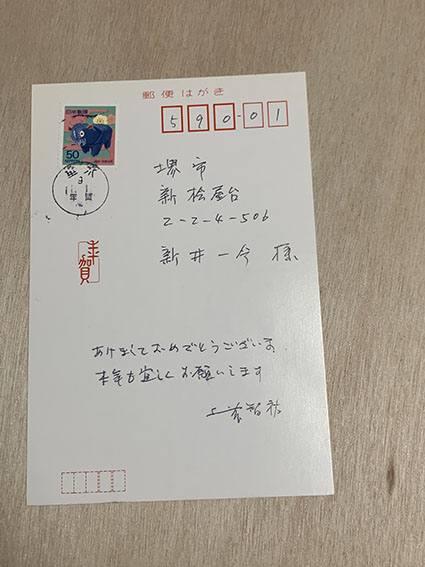 郵便はがき
日本郵便
50
590-01
堺市
新桧尾台
2-2-4-506
新井一令 様
年賀
年賀
あけましておめでとうございます
本年も宜しくお願いします